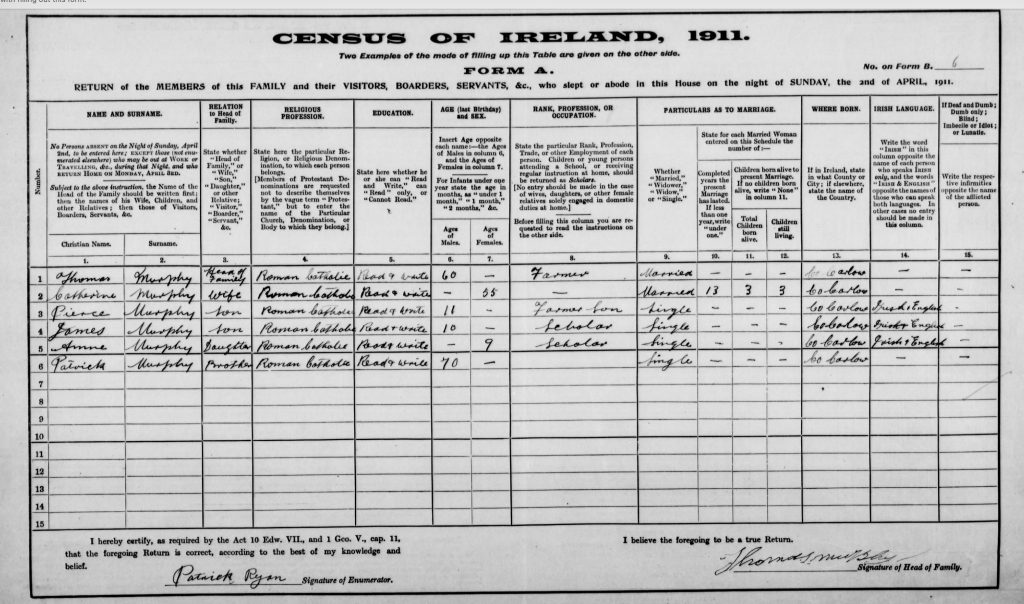 with filling out this form.
CENSUS OF IRELAND, 1911.
Two Examples of the mode of filling up this Table are given on the other side.
FORM A.
No. on Form B. 6
RETURN of the MEMBERS of this FAMILY and their VISITORS, BOARDERS, SERVANTS, &c., who slept or abode in this House on the night of SUNDAY, the 2nd of APRIL, 1911.
Number.
NAME AND SURNAME.
No Persons ABSENT on the Night of Sunday, April
2nd, to be entered here; EXCEPT those (not enu-
merated elsewhere) who may be out at WORK or
TRAVELLING, &c., during that Night, and who
RETURN HOME ON MONDAY, APRIL 3RD.
Subject to the above instruction, the Name of the
Head of the Family should be written first;
then the names of his Wife, Children, and
other Relatives; then those of Visitors,
Boarders, Servants, &c.
Christian Name.
Surname.
RELATION
to Head of
Family.
State whether
"Head of
Family," or
"Wife,"
"Son,"
"Daughter,"
or other
Relative;
"Visitor,"
"Boarder,"
"Servant,"
&c.
RELIGIOUS
PROFESSION.
State here the particular Re-
ligion, or Religious Denom-
ination, to which each person
belongs.
[Members of Protestant De-
nominations are requested
not to describe themselves
by the vague term "Protes-
tant," but to enter the
name of the Particular
Church, Denomination, or
Body to which they belong.]
EDUCATION.
State here whether he
or she can "Read
and Write," can
"Read" only, or
"Cannot Read."
AGE (last Birthday)
and SEX.
Insert Age opposite
each name:—the Ages
of Males in column 6,
and the Ages of
Females in column 7.
For Infants under one
year state the age in
months, as "under 1
month," "1 month,"
"2 months," &c.
Ages
of
Males.
Ages
of
Females.
RANK, PROFESSION, OR
OCCUPATION.
State the particular Rank, Profession,
Trade, or other Employment of each
person. Children or young persons
attending a School, or receiving
regular instruction at home, should
be returned as Scholars.
[No entry should be made in the case
of wives, daughters, or other female
relatives solely engaged in domestic
duties at home.]
Before filling this column you are re-
quested to read the instructions on
the other side.
PARTICULARS AS TO MARRIAGE.
Whether
"Married,"
"Widower,"
"Widow,"
or "Single."
State for each Married Woman
entered on this Schedule the
number of:—
Completed
years the
present
Marriage
has lasted.
If less
than one
year, write
"under
one."
Children born alive to
present Marriage.
If no children born
alive, write "None"
in column 11.
Total
Children
born
alive.
Children
still
living.
WHERE BORN.
If in Ireland, state
in what County or
City; if elsewhere,
state the name of
the Country.
IRISH LANGUAGE.
Write the word
"IRISH" in this
column opposite the
name of each person
who speaks IRISH
only, and the words
"IRISH & ENGLISH"
opposite the names of
those who can speak
both languages. In
other cases no entry
should be made in
this column.
If Deaf and Dumb;
Dumb only;
Blind;
Imbecile or Idiot;
or Lunatic.
Write the respec-
tive infirmities
opposite the name
of the afflicted
person.
1. 2. 3. 4. 5. 6. 7. 8. 9. 10. 11. 12. 13. 14. 15.
1 Thomas Murphy Head of Family Roman Catholic Read & write 60 — Farmer Married — — — Co Carlow — —
2 Catherine Murphy Wife Roman Catholic Read & write — 55 — Married 13 3 3 Co Carlow — —
3 Pierce Murphy Son Roman Catholic Read & write 11 — Farmer Son Single — — — Co Carlow Irish & English —
4 James Murphy Son Roman Catholic Read & write 10 — Scholar Single — — — Co Carlow Irish & English —
5 Anne Murphy Daughter Roman Catholic Read & write — 9 Scholar Single — — — Co Carlow Irish & English —
6 Patrick Murphy Brother Roman Catholic Read & write 70 — Single — — — Co Carlow — —
7
8
9
10
11
12
13
14
15
I hereby certify, as required by the Act 10 Edw. VII., and 1 Geo. V., cap. 11,
that the foregoing Return is correct, according to the best of my knowledge and
belief.
Patrick Ryan Signature of Enumerator.
I believe the foregoing to be a true Return.
Thomas Murphy Signature of Head of Family.